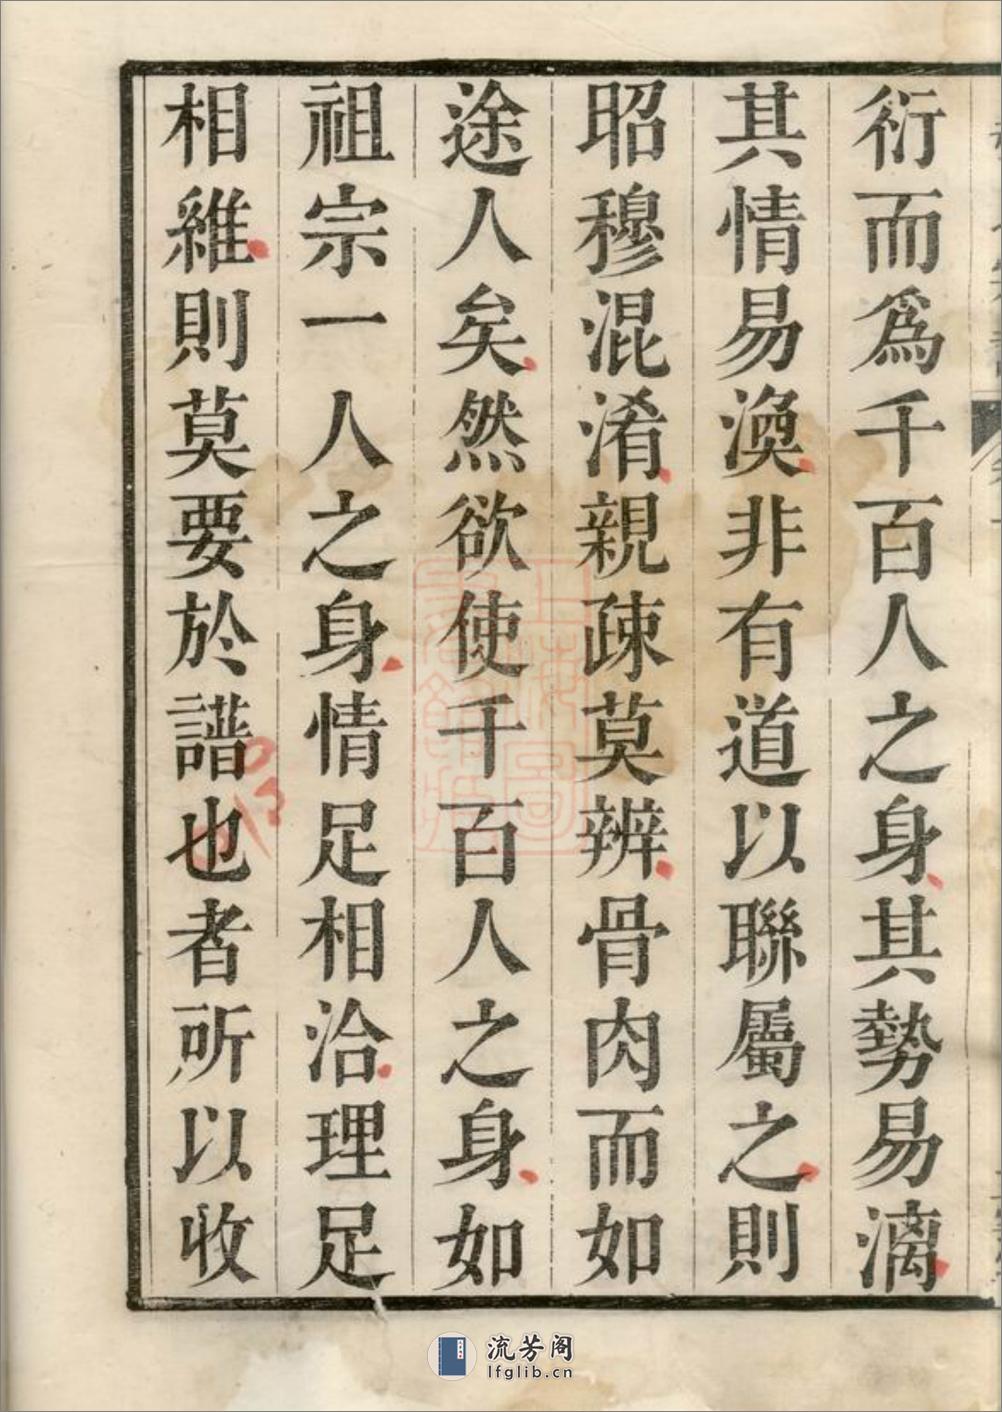 衍而爲千百人之身其勢易漓
其情易渙非有道以聯屬之則
昭穆混淆親疎莫辨骨肉而如
途人矣然欲使千百人之身如
祖宗一人之身情足相洽理足
相維則莫要於譜也者所以收
流芳阁
lfglib.cn